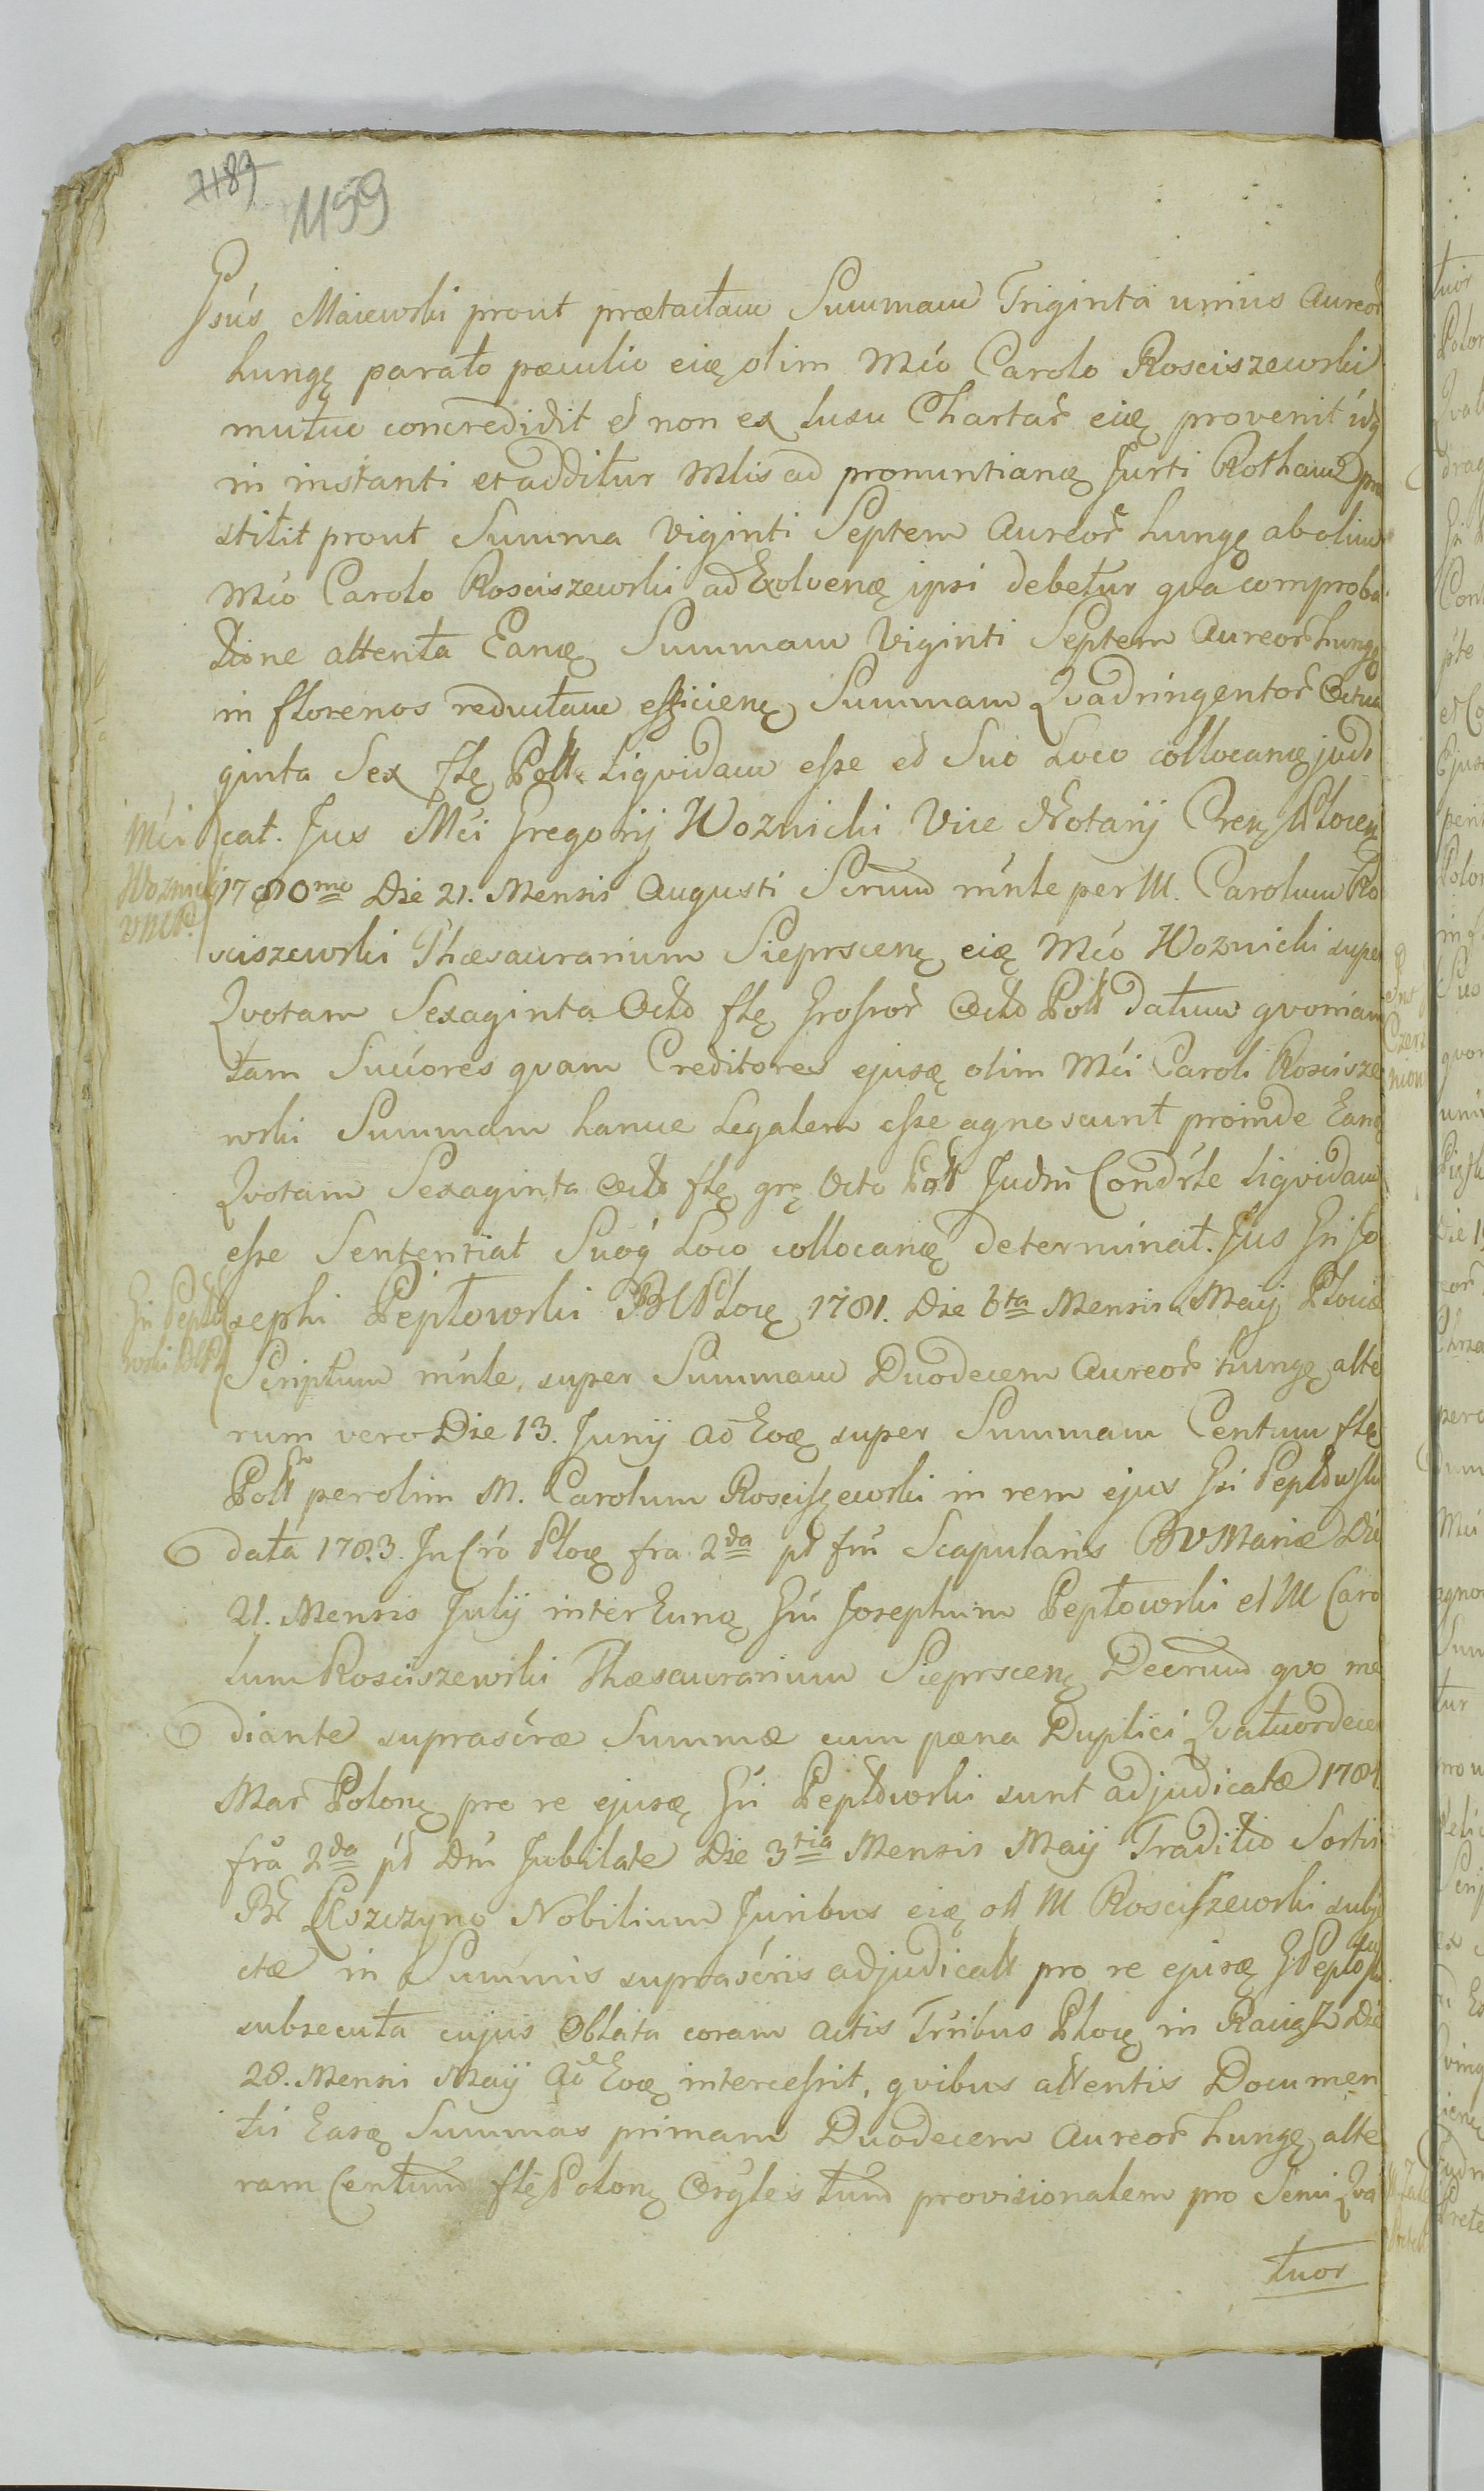 7189
1159
Gsús Maiewski prout prætactam Summam Triginta unius Aureoř
hungę parato pæculio eię olim Mćo Carolo Rosciszewski
mutue concredidit et non ex lusu Chartař eię provenit
in instanti et additur Mlis ad pronuntianę Jurti Rotham præ
stitit prout Summa Viginti Septem Aureoř hungę ab olim
Mćo Carolo Rosciszewski ad Exolvenę ipsi debetur qva comproba
tione attenta Eanę Summam Viginti Septem Aureoř hungę
in florenos reductam efficienę Summam Qvadringentoř Octua
ginta Sex flę Poll. Liqvidam eſse et Suo Loco collocanę judi
cat. Jus Mći Gregorij Woznicki Vice Notarij Cren Plocenę
1780mo Die 21. Mensis Augusti Scrum mńle per M. Carolum Ro
sciszewski Thæsaurarium Sieprscenę eię Mćo Woznicki super
Qvotam Sexaginta Octo flę Groſsoř Octo Poll datum qvoniam
tam Succores qvam Creditores ejusę olim Mći Caroli Roscisze
wski Summam hance Legalem eſse agnoscunt proinde Eanę
Qvotam Sexaginta Octo flę grę Octo Poll Judm Condŕle liqvidam
eſse Sententiat Suoq Loco collocanę determinat. Jus Gń Jo
sephi Pepłowski BCPlocę 1781. Die 6ta Mensis Maij Plociæ
Scriptum mńle, super Summam Duodecem Aureoř hungę alte
rum vero Die 13. Junij Ad Eoę super Summam Centum flę
Poll per olim M. Carolum Rosciſzewski in rem ejus Gń Pepłowski
data 1783. In Cró Plocę fra 2da pt frú Scapularis BVMariæ Die
21. Mensis Julij inter Eunę Gń Josephum Pepłowski et M Caro
lum Rosciszewski Thæsaurarium Sieprscenę Decrum qvo me
diante suprascræ Summæ cum pæna Duplici Qvatuordecem
Mař Polonę pro re ejusę Gń Pepłowski sunt adjudicatæ 1784.
fra 2da pt Dm Jubilate Die 3tia Mensis Maij Traditio Sortis
Bř Lſzczyno Nobilium Juribus eię oll M Rosciſzewski subje
ctæ in Summis suprascris adjudicatt pro re ejusę G Pepłowski
subsecuta cujus Oblata coram Actis Trńibus Plocę in Raciąż Die
28. Mensis Maij Ad Eoę interceſsit, qvibus attentis Documen
tis Easę Summas primam Duodecem Aureoř hungę alte
ram Centum flę Polonę Orgles tum provisionalem pro Semi Qva
tuor
Mći
Woznicki
VNCP.
Gń Pepło
wski BCPl